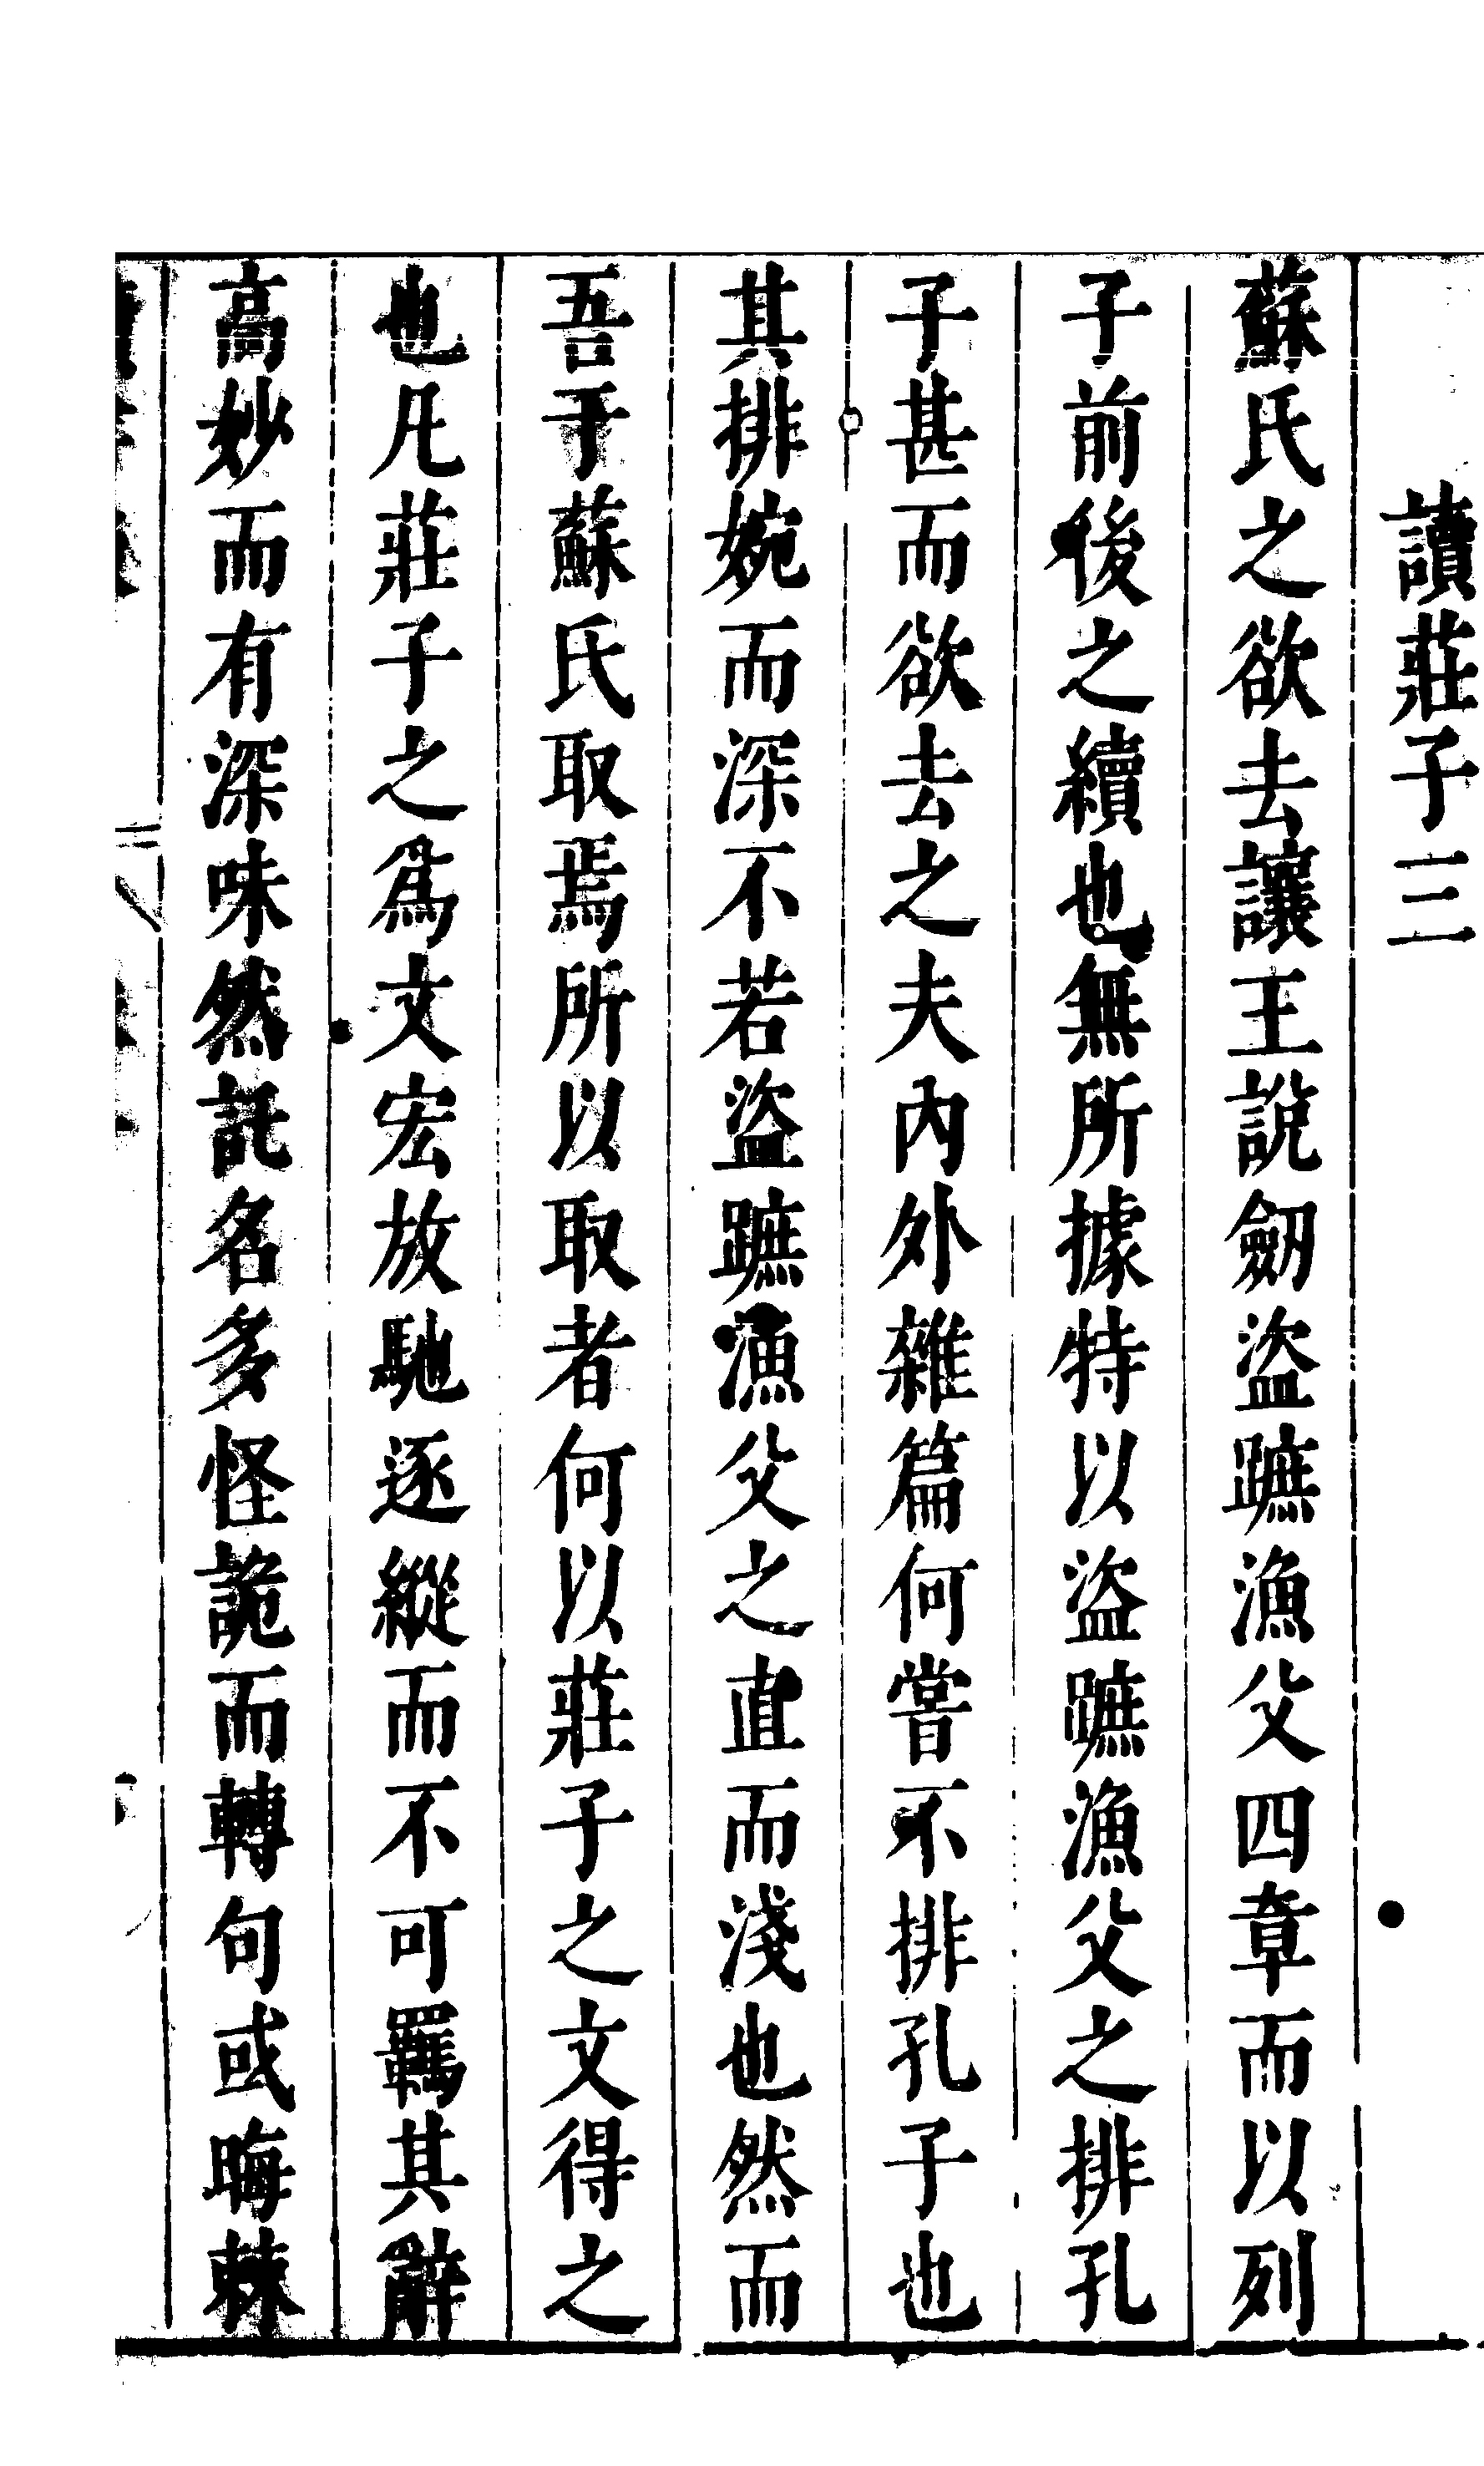 讀莊子三
蘇氏之欲去讓王說劒盜蹠漁父四章而以列
子前後之續也無所據特以盜蹠漁父之排孔
子甚而欲去之夫內外雜篇何嘗不排孔子也
其排婉而深不若盜蹠漁父之直而淺也然而
吾于蘇氏取焉所以取者何以莊子之文得之
也凡莊子之為文宏放馳逐縱而不可羈其辭
高妙而有深味然託名多怪詭而轉句或晦棘